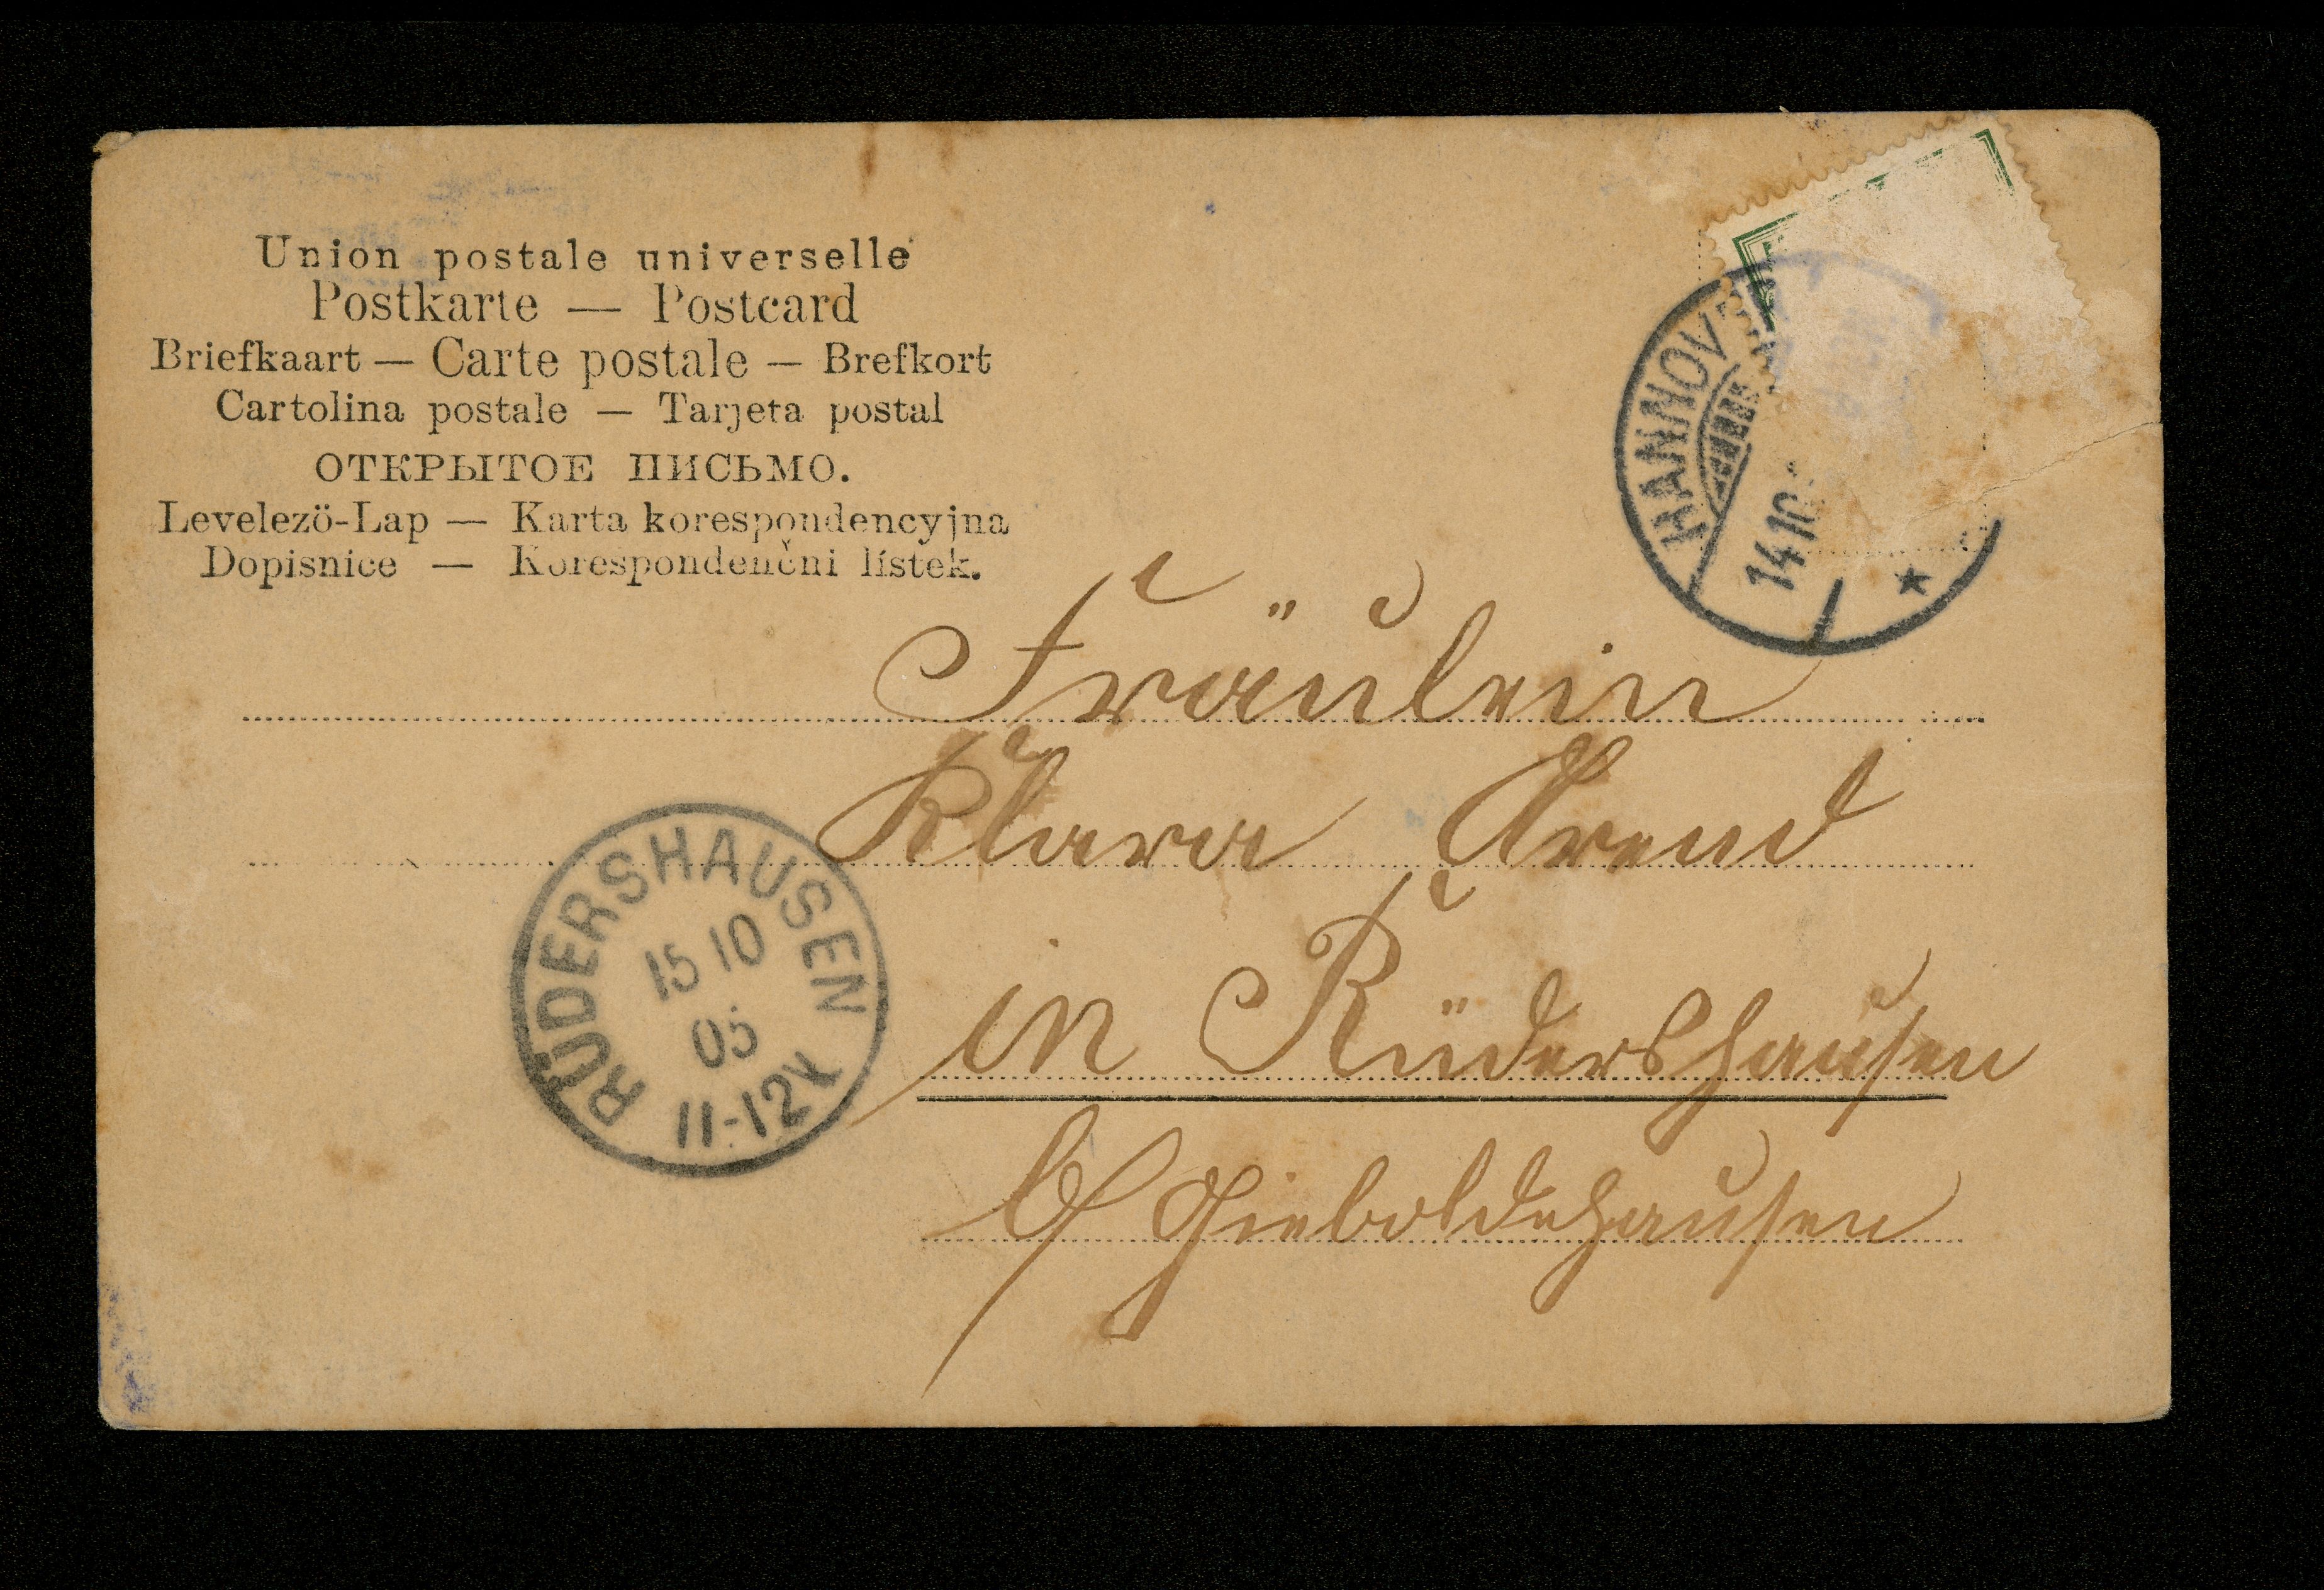 Union postale universelle
Postkarte — Postcard
Briefkaart — Carte postale — Brefkort
Cartolina postale — Tarjeta postal
ОТКРЫТОЕ ПИСЬМО.
Levelezö-Lap — Karta korespondencyjna
Dopisnice — Korespondenčni lístek.
HANNOV
14.10
*
Fräulein
Klara Arend
RÜDERSHAUSEN
15 10
05
11-12V
in Rüdershausen
b/ Gieboldehausen